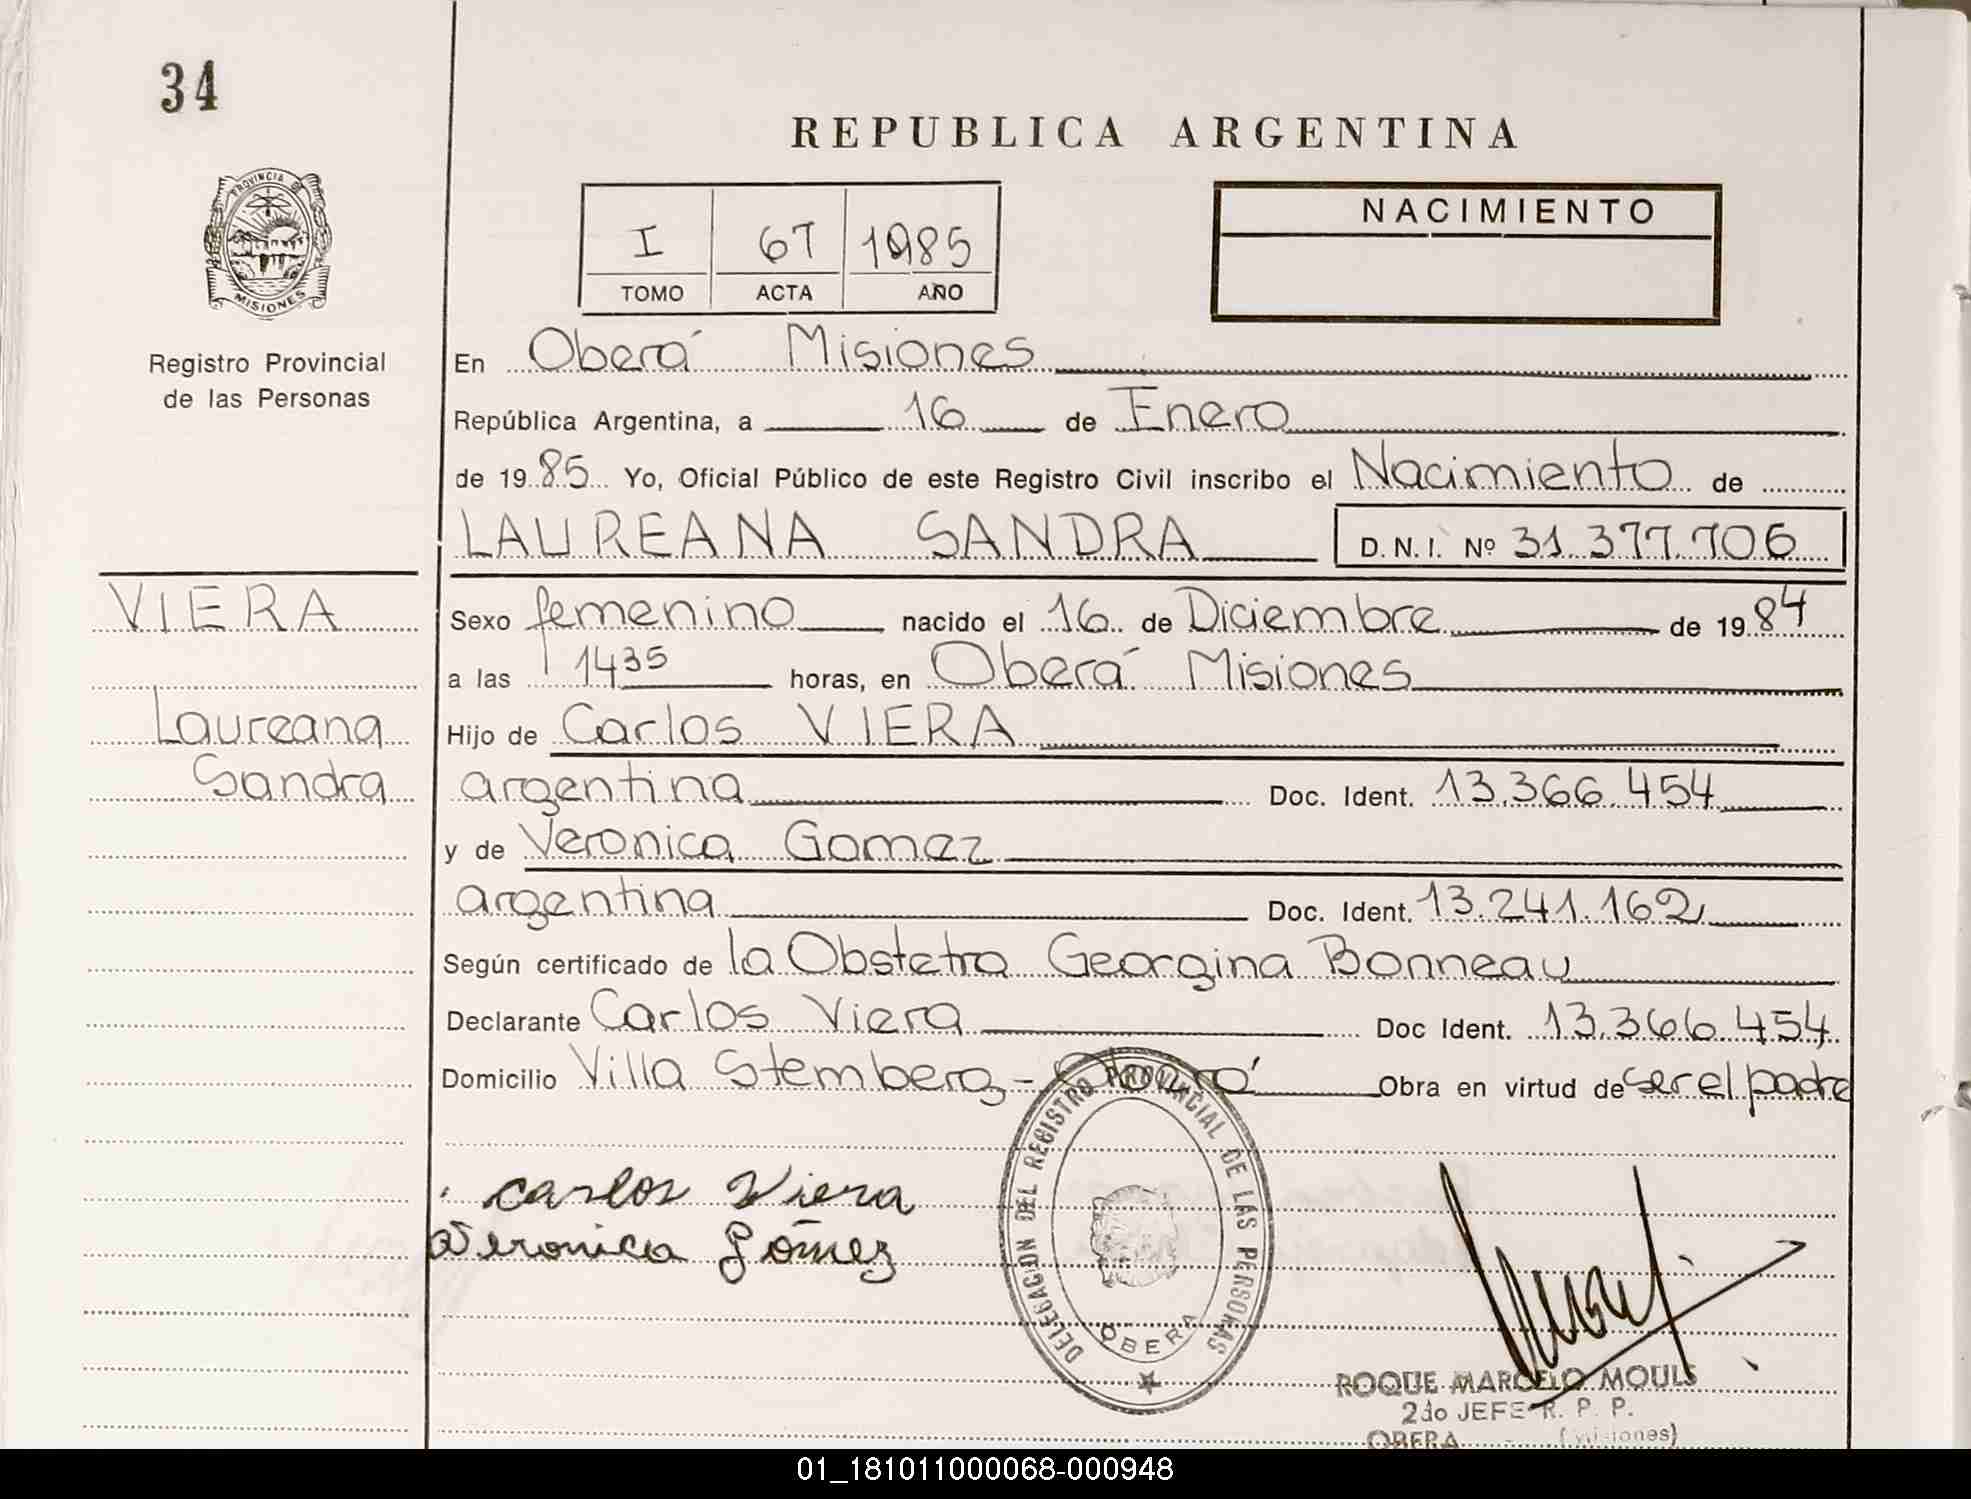 34
REPUBLICA ARGENTINA
PROVINCIA DE
MISIONES
NACIMIENTO
I 67 1985
TOMO ACTA AÑO
Registro Provincial
de las Personas
En Oberá Misiones
República Argentina, a 16 de Enero
de 1985 Yo, Oficial Público de este Registro Civil inscribo el Nacimiento de
LAUREANA SANDRA D.N.I. Nº 31.377.706
VIERA
Laureana
Sandra
Sexo femenino nacido el 16 de Diciembre de 1984
a las 1435 horas, en Oberá Misiones
Hijo de Carlos VIERA
argentina Doc. Ident. 13.366.454
y de Veronica Gomez
argentina Doc. Ident. 13.241.162
Según certificado de la Obstetra Georgina Bonneau
Declarante Carlos Viera Doc Ident. 13.366.454
Domicilio Villa Stemberg - Oberá Obra en virtud de ser el padre
Carlos Viera
Veronica Gómez
DELEGACION DEL REGISTRO PROVINCIAL DE LAS PERSONAS
OBERA
ROQUE MARCELO MOULS
2do JEFE R. P. P.
OBERA (Misiones)
01_181011000068-000948